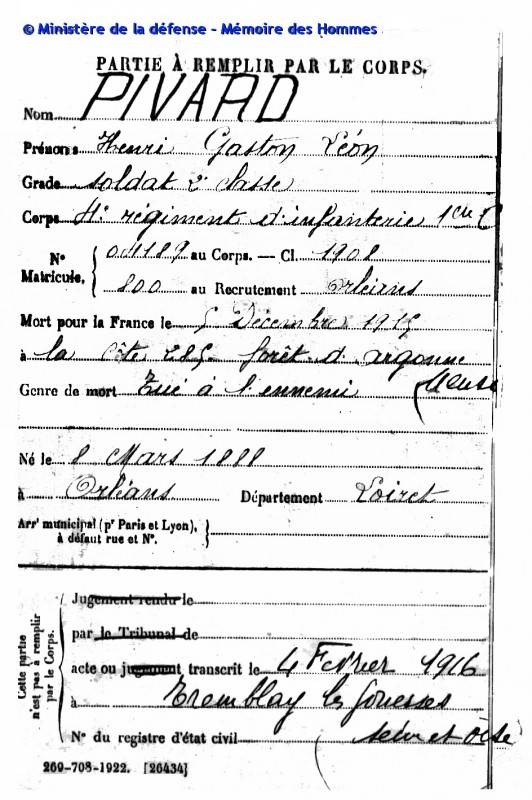 © Ministère de la défense - Mémoire des Hommes
PARTIE À REMPLIR PAR LE CORPS.
Nom PIVARD
Prénoms Henri Gaston Léon
Grade soldat 2e classe
Corps 4e régiment d'infanterie 1ere C
No Matricule. 04189 au Corps. — Cl. 1908
800 au Recrutement Orléans
Mort pour la France le 5 Décembre 1915
à la côte 285 forêt d'argonne
Genre de mort Tué à l'ennemi (Meuse
Né le 8 Mars 1888
à Orléans Département Loiret
Arrt municipal (pr Paris et Lyon), à défaut rue et No.
Cette partie n'est pas à remplir par le Corps.
Jugement rendu le
par le Tribunal de
acte ou jugement transcrit le 4 Février 1916
à Tremblay les Gonesses
(seine et oise
No du registre d'état civil
269-708-1922. [26434]